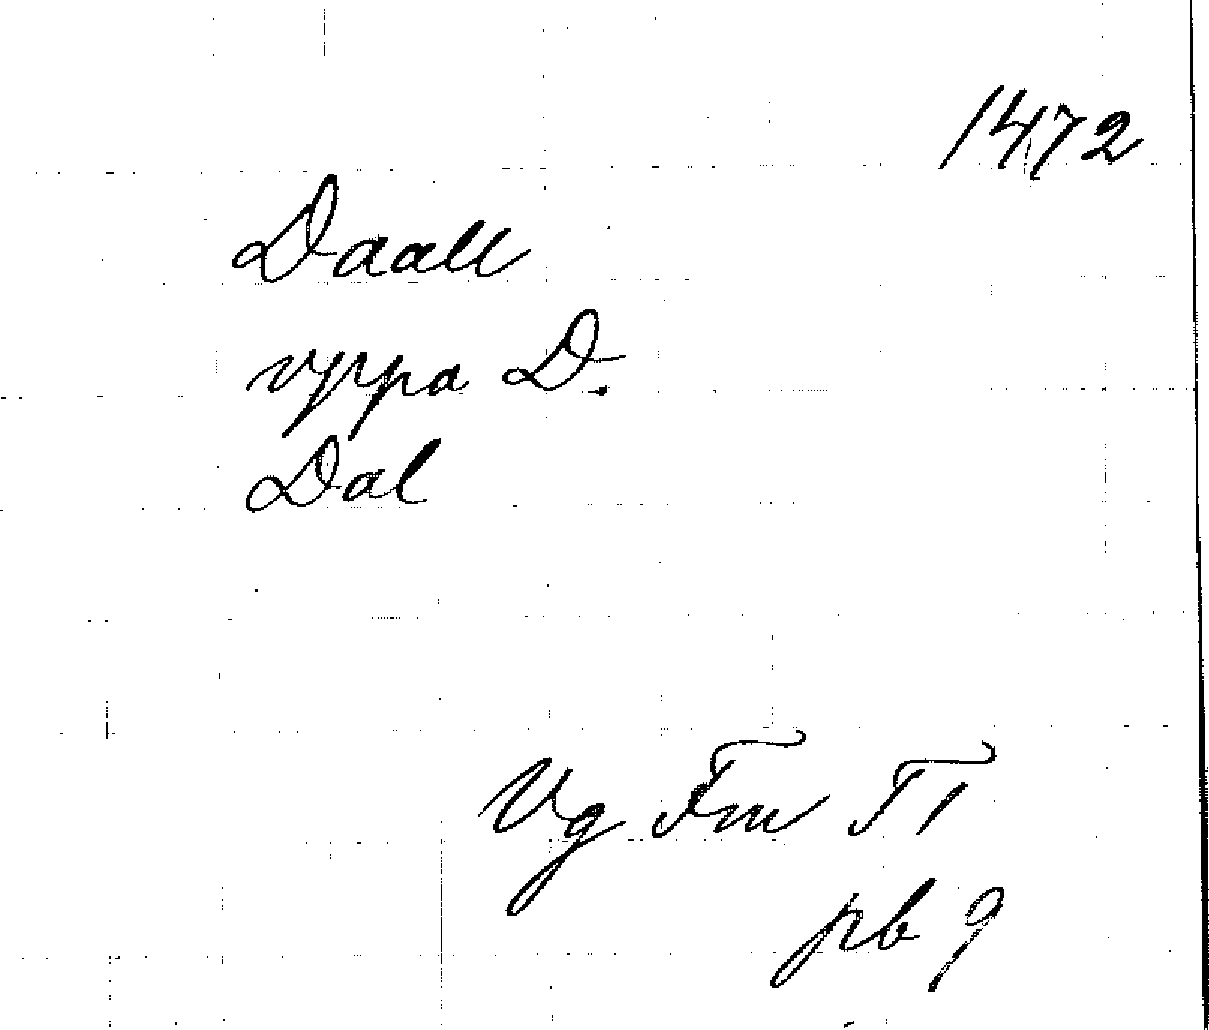 1472
Daall
vppa D.
Dal
Vg Fm T1
pb 9